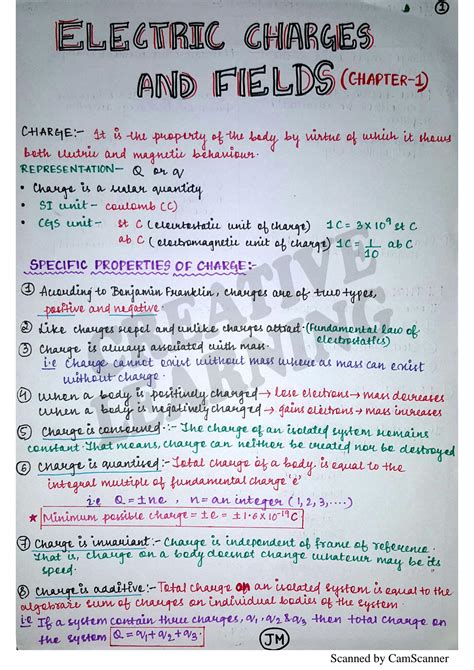 1
ELECTRIC CHARGES
AND FIELDS (CHAPTER-1)
CHARGE:- It is the property of the body by virtue of which it shows
both electric and magnetic behaviour.
REPRESENTATION- Q or q
• Charge is a scalar quantity
• SI unit - coulomb (C)
• CGS unit - st C (electrostatic unit of charge) 1C = 3 x 10⁹ st C
ab C (electromagnetic unit of charge) 1C = 1/10 ab C
SPECIFIC PROPERTIES OF CHARGE:-
① According to Benjamin Franklin, charges are of two types,
positive and negative.
② Like charges repel and unlike charges attract. (Fundamental law of
electrostatics)
③ Charge is always associated with mass.
i.e Charge cannot exist without mass where as mass can exist
without charge.
④ When a body is positively charged → lose electrons → mass decreases
When a body is negatively charged → gains electrons → mass increases
⑤ Charge is conserved :- The charge of an isolated system remains
constant. That means, charge can neither be created nor be destroyed
⑥ Charge is quantised :- Total charge of a body is equal to the
integral multiple of fundamental charge 'e'
i.e Q = ± ne , n = an integer (1, 2, 3, ....)
★ Minimum possible charge = ± e = ± 1.6 x 10⁻¹⁹ C
⑦ Charge is invariant :- Charge is independent of frame of reference.
That is, charge on a body doesnot change whatever may be its
speed.
⑧ Charge is additive :- Total charge on an isolated system is equal to the
algebraic sum of charges on individual bodies of the system.
i.e If a system contain three charges, q₁, q₂ & q₃ then total charge on
the system Q = q₁ + q₂ + q₃.
JM
CREATIVE
LEARNING
Scanned by CamScanner